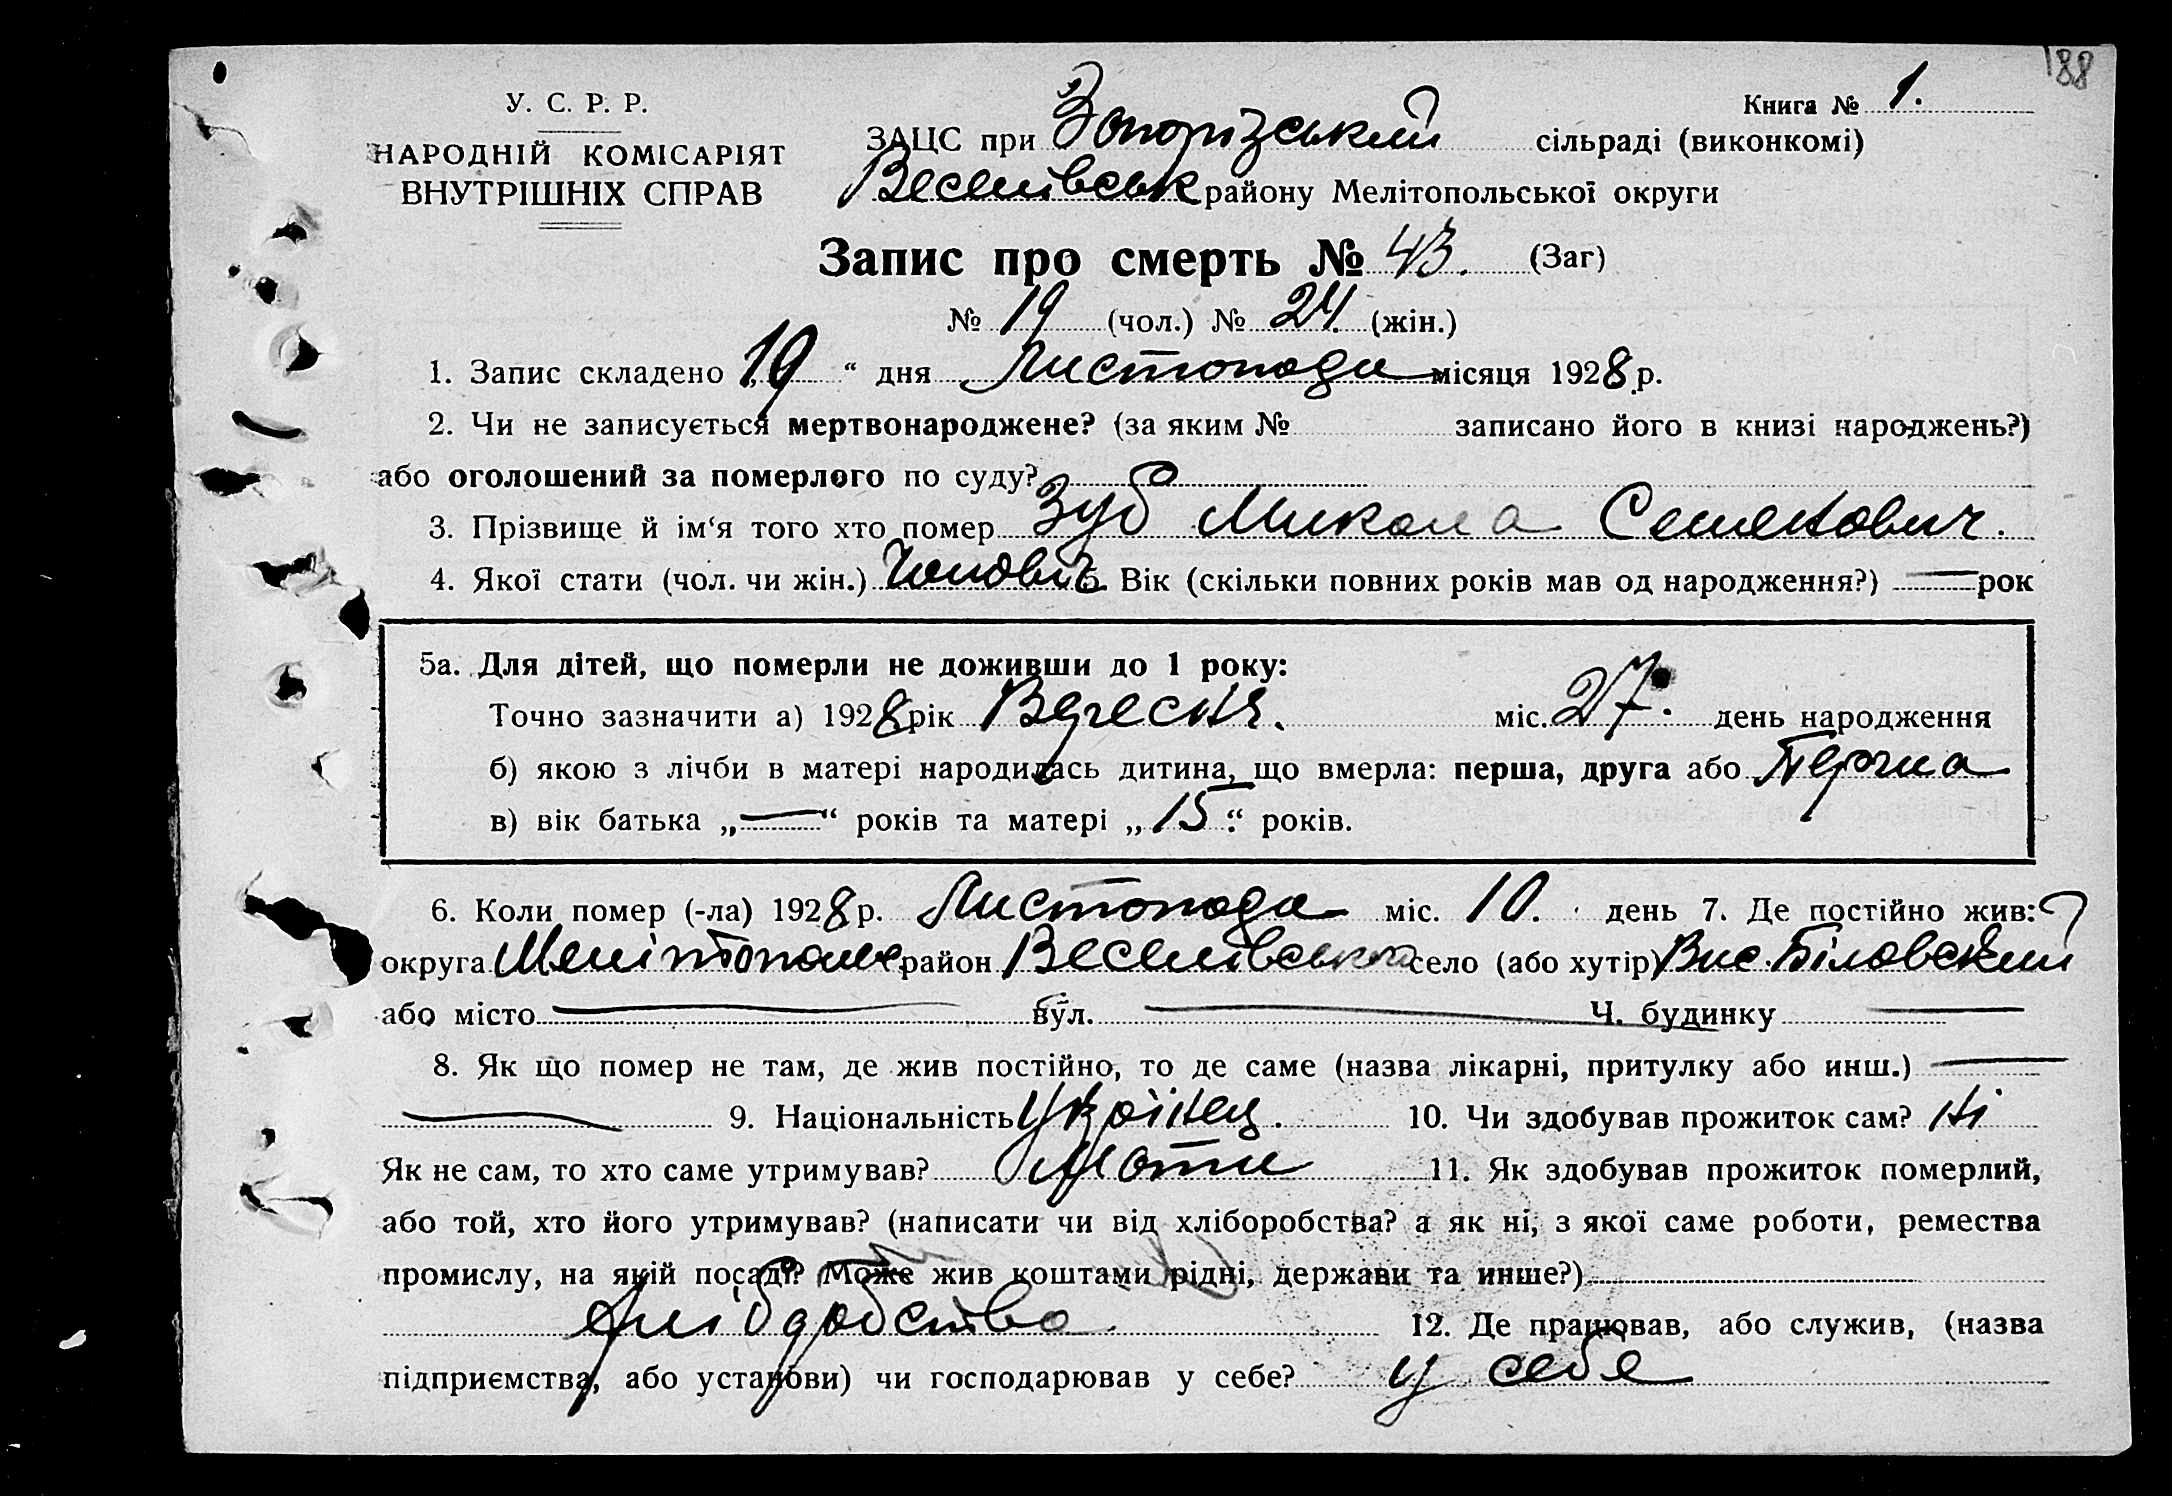 188
У. С. Р. Р.
Книга № 1.
НАРОДНІЙ КОМІСАРІЯТ
ВНУТРІШНІХ СПРАВ
ЗАЦС при Запорізський сільраді (виконкомі)
Веселівськ району Мелітопольської округи
Запис про смерть № 43. (Заг)
№ 19 (чол.) № 24 (жін.)
1. Запис складено „19“ дня Листопада місяця 1928 р.
2. Чи не записується мертвонароджене? (за яким № записано його в книзі народжень?)
або оголошений за померлого по суду?
3. Прізвище й ім‘я того хто помер Зуб Микола Семенович.
4. Якої стати (чол. чи жін.) Чоловіч 5. Вік (скільки повних років мав од народження?) — рок
5а. Для дітей, що померли не доживши до 1 року:
Точно зазначити а) 1928 рік Вересня. міс. 27. день народження
б) якою з лічби в матері народилась дитина, що вмерла: перша, друга або Перша
в) вік батька „—“ років та матері „15“ років.
6. Коли помер (-ла) 1928 р. Листопада міс. 10. день 7. Де постійно жив:
округа Мелітопольс район Веселівського село (або хутір) Вис. Біловский
або місто — вул. — Ч. будинку —
8. Як що помер не там, де жив постійно, то де саме (назва лікарні, притулку або инш.) —
— 9. Національність Україинец. 10. Чи здобував прожиток сам? Ні
Як не сам, то хто саме утримував? Мати 11. Як здобував прожиток померлий,
або той, хто його утримував? (написати чи від хліборобства? а як ні, з якої саме роботи, ремества
промислу, на якій посаді? Може жив коштами рідні, держави та инше?)
Хліборобство 12. Де працював, або служив, (назва
підприємства, або установи) чи господарював у себе? у себе